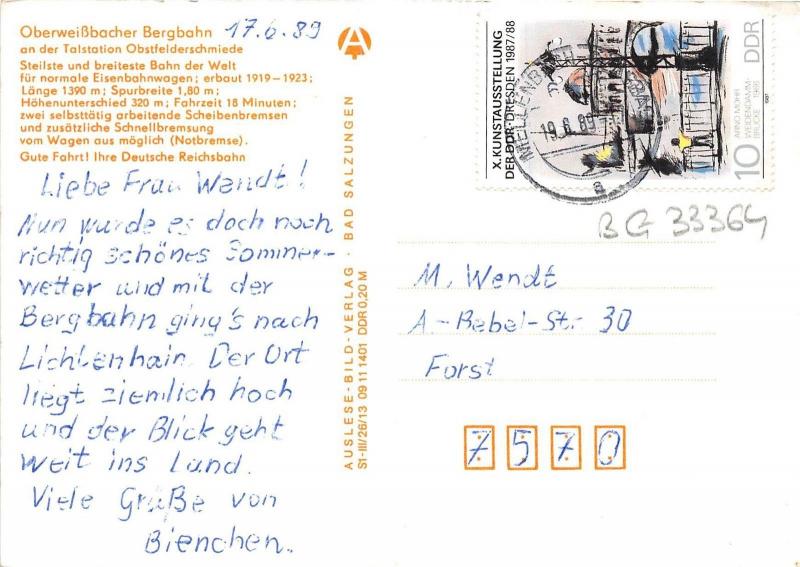 Oberweißbacher Bergbahn 17.6.89
an der Talstation Obstfelderschmiede
Steilste und breiteste Bahn der Welt
für normale Eisenbahnwagen; erbaut 1919–1923;
Länge 1390 m; Spurbreite 1,80 m;
Höhenunterschied 320 m; Fahrzeit 18 Minuten;
zwei selbsttätig arbeitende Scheibenbremsen
und zusätzliche Schnellbremsung
vom Wagen aus möglich (Notbremse).
Gute Fahrt! Ihre Deutsche Reichsbahn
Liebe Frau Wendt!
Nun wurde es doch noch
richtig schönes Sommer-
wetter und mit der
Bergbahn ging's nach
Lichtenhain. Der Ort
liegt ziemlich hoch
und der Blick geht
weit ins Land.
Viele Grüße von
Bienchen.
A
AUSLESE-BILD-VERLAG · BAD SALZUNGEN
S1-III/26/13 09 11 1401 DDR 0,20 M
X. KUNSTAUSSTELLUNG
DER DDR · DRESDEN 1987/88
19.6.89
a
10 DDR
ARNO MOHR
WEIDENDAMM-
BRÜCKE
BG 33364
M. Wendt
A.-Bebel-Str. 30
Forst
7570